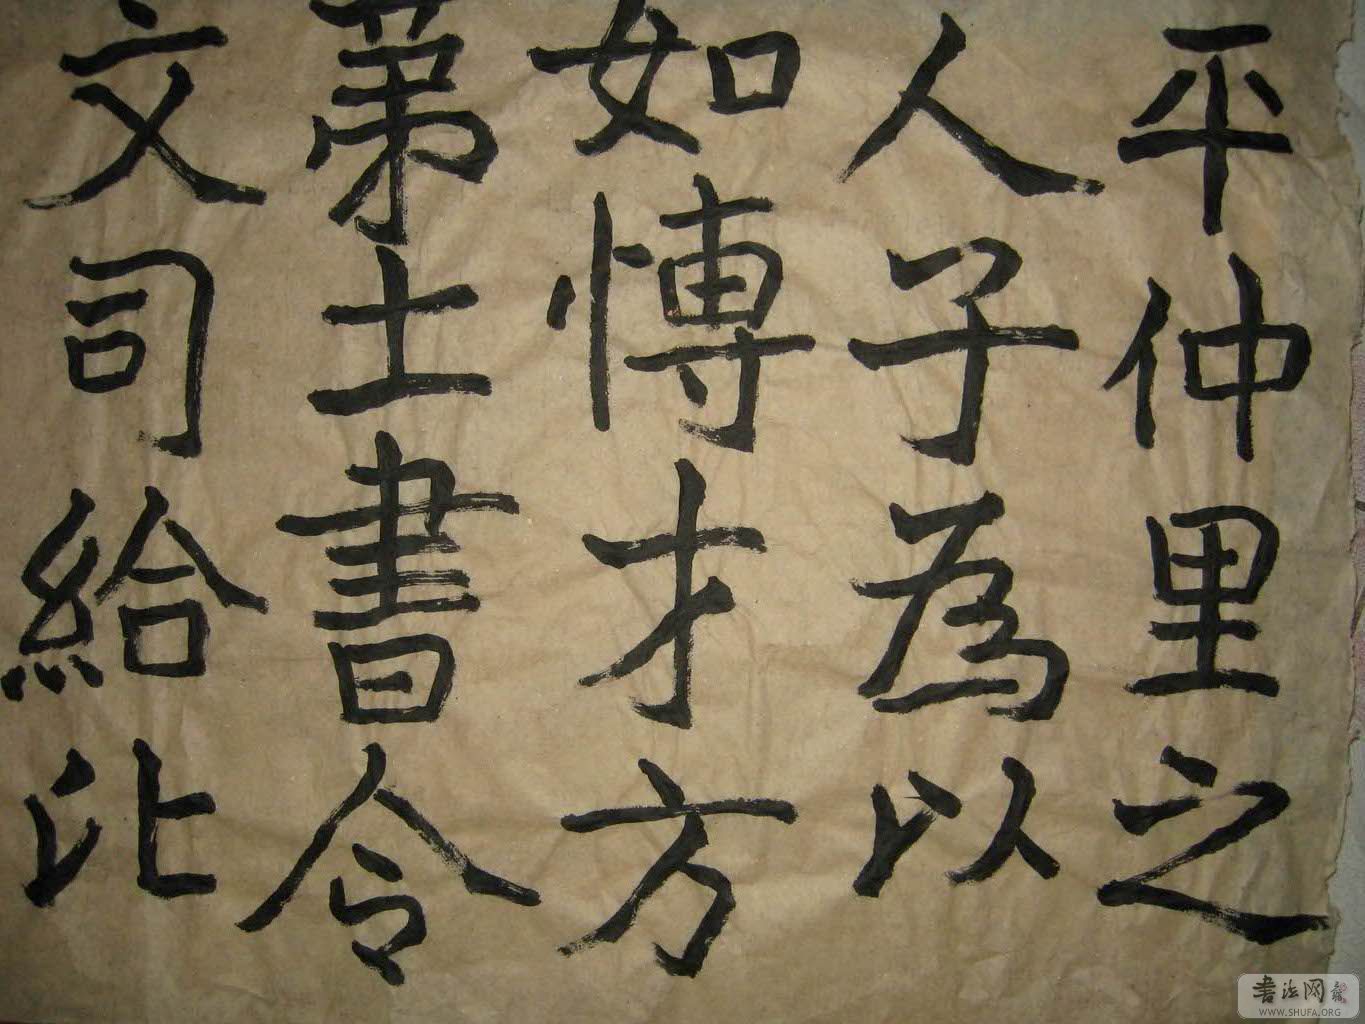 平仲里之
人子為以
如博才方
第土書令
文司給比
书法网
WWW.SHUFA.ORG